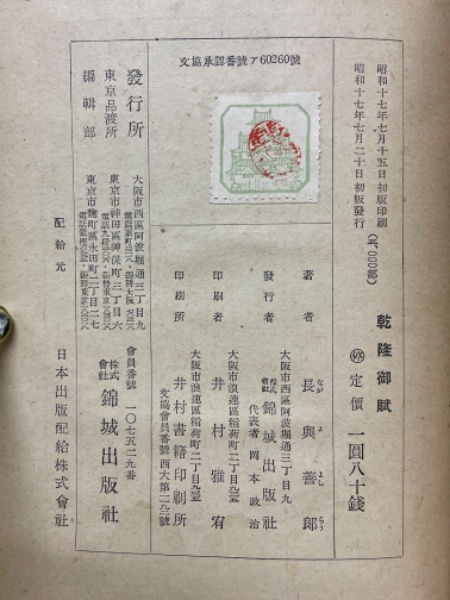 文協承認番號ア60260號
昭和十七年七月十五日初版印刷
昭和十七年七月二十日初版發行
乾隆御賦
定價 一圓八十錢
著者 長與善郎
なが よ よし らう
大阪市西區阿波堀通三丁目九
發行者 株式會社 錦城出版社
代表者 岡本政治
大阪市浪速區稻荷町二丁目九三五
印刷者 井村雅宥
大阪市浪速區稻荷町二丁目九三五
印刷所 井村書籍印刷所
文協會員番號西大第一二九一號
發行所
大阪市西區阿波堀通三丁目九
東京品渡所
東京市神田區神保町三丁目六
編輯部
東京市麴町區永田町二丁目二七
會員番號 一〇七五二九番
株式會社 錦城出版社
配給元 日本出版配給株式會社